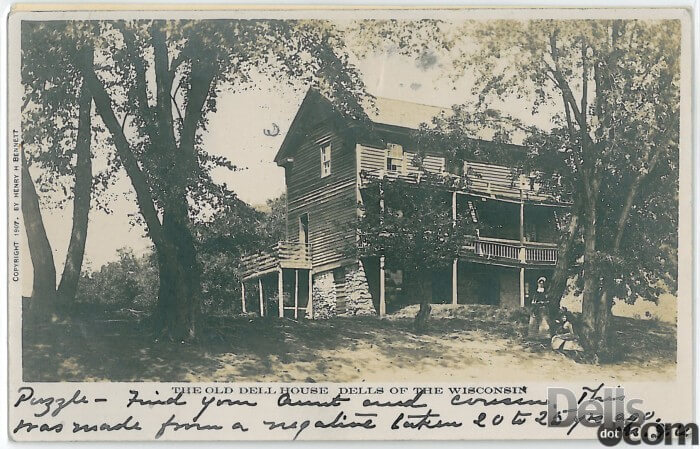 COPYRIGHT 1907. BY HENRY H BENNETT
THE OLD DELL HOUSE DELLS OF THE WISCONSIN
Puzzle - Find your Aunt and cousin. This
was made from a negative taken 20 to 25 yrs ago.
Dells
dot.com